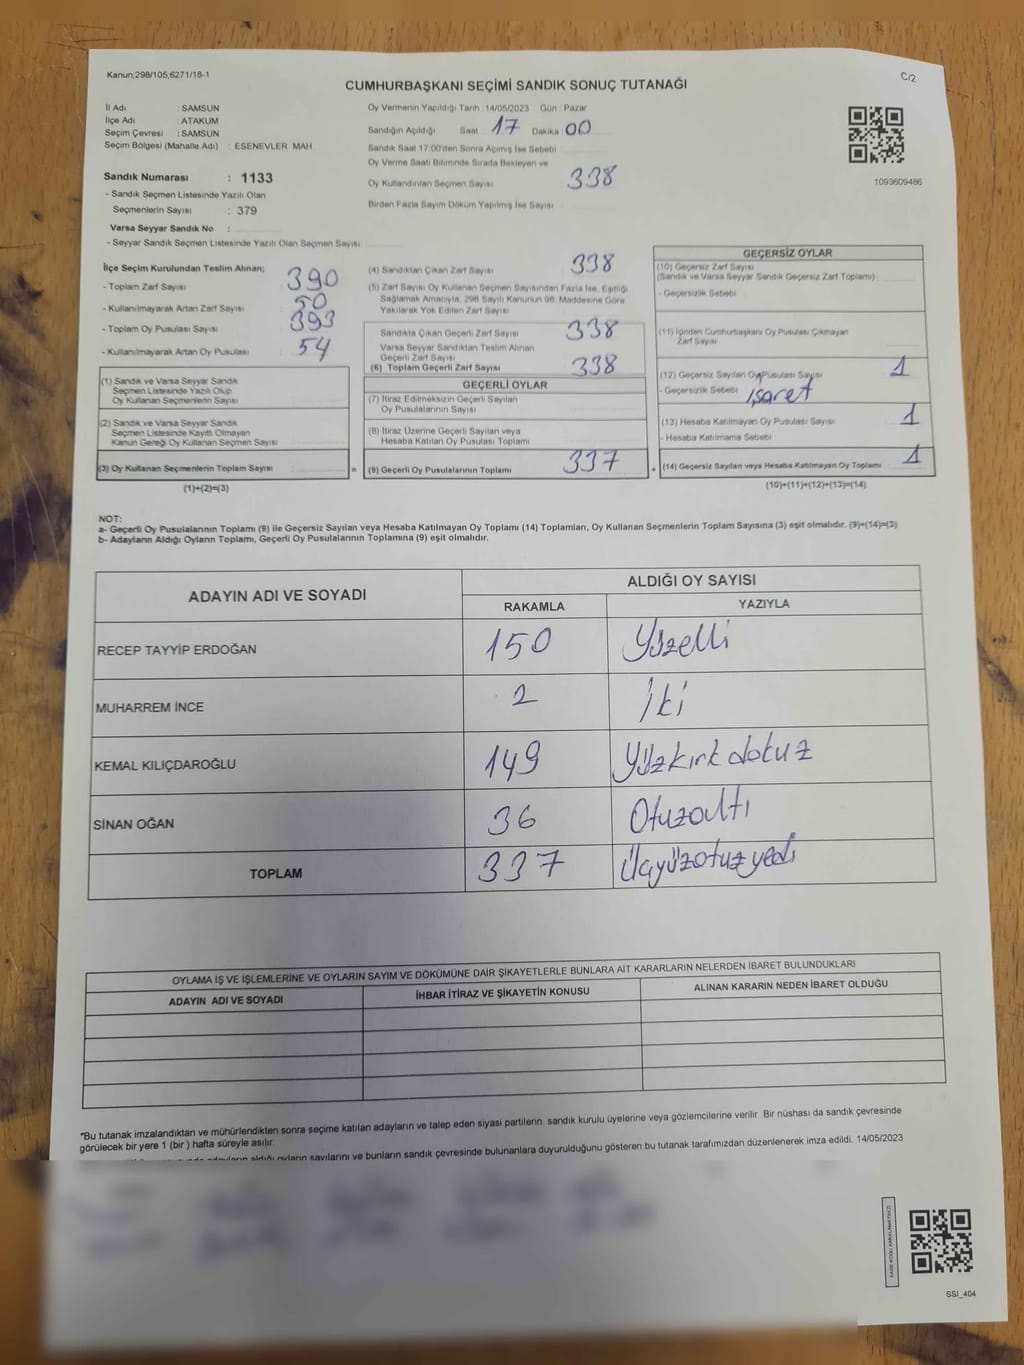 Kanun;298/105;6271/18-1
C/2
CUMHURBAŞKANI SEÇİMİ SANDIK SONUÇ TUTANAĞI
İl Adı : SAMSUN
İlçe Adı : ATAKUM
Seçim Çevresi : SAMSUN
Seçim Bölgesi (Mahalle Adı) : ESENEVLER MAH
Sandık Numarası : 1133
- Sandık Seçmen Listesinde Yazılı Olan
Seçmenlerin Sayısı : 379
Varsa Seyyar Sandık No :
- Seyyar Sandık Seçmen Listesinde Yazılı Olan Seçmen Sayısı
Oy Vermenin Yapıldığı Tarih : 14/05/2023 Gün : Pazar
Sandığın Açıldığı Saat : 17 Dakika 00
Sandık Saat 17:00'den Sonra Açılmış İse Sebebi
Oy Verme Saati Bitiminde Sırada Bekleyen ve
Oy Kullandırılan Seçmen Sayısı 338
Birden Fazla Sayım Döküm Yapılmış İse Sayısı
1093609466
İlçe Seçim Kurulundan Teslim Alınan;
- Toplam Zarf Sayısı 390
- Kullanılmayarak Artan Zarf Sayısı 50
- Toplam Oy Pusulası Sayısı 393
- Kullanılmayarak Artan Oy Pusulası 54
(1) Sandık ve Varsa Seyyar Sandık
Seçmen Listesinde Yazılı Olup
Oy Kullanan Seçmenlerin Sayısı
(2) Sandık ve Varsa Seyyar Sandık
Seçmen Listesinde Kayıtlı Olmayan
Kanun Gereği Oy Kullanan Seçmen Sayısı
(3) Oy Kullanan Seçmenlerin Toplam Sayısı =
(1)+(2)=(3)
(4) Sandıktan Çıkan Zarf Sayısı 338
(5) Zarf Sayısı Oy Kullanan Seçmen Sayısından Fazla İse, Eşitliği
Sağlamak Amacıyla, 298 Sayılı Kanunun 98. Maddesine Göre
Yakılarak Yok Edilen Zarf Sayısı
Sandıkta Çıkan Geçerli Zarf Sayısı 338
Varsa Seyyar Sandıktan Teslim Alınan
Geçerli Zarf Sayısı
(6) Toplam Geçerli Zarf Sayısı 338
GEÇERLİ OYLAR
(7) İtiraz Edilmeksizin Geçerli Sayılan
Oy Pusulalarının Sayısı
(8) İtiraz Üzerine Geçerli Sayılan veya
Hesaba Katılan Oy Pusulası Toplamı
(9) Geçerli Oy Pusulalarının Toplamı 337 +
GEÇERSİZ OYLAR
(10) Geçersiz Zarf Sayısı
(Sandık ve Varsa Seyyar Sandık Geçersiz Zarf Toplamı)
- Geçersizlik Sebebi
(11) İçinden Cumhurbaşkanı Oy Pusulası Çıkmayan
Zarf Sayısı
(12) Geçersiz Sayılan Oy Pusulası Sayısı 1
- Geçersizlik Sebebi işaret
(13) Hesaba Katılmayan Oy Pusulası Sayısı 1
- Hesaba Katılmama Sebebi
(14) Geçersiz Sayılan veya Hesaba Katılmayan Oy Toplamı 1
(10)+(11)+(12)+(13)=(14)
NOT:
a- Geçerli Oy Pusulalarının Toplamı (9) ile Geçersiz Sayılan veya Hesaba Katılmayan Oy Toplamı (14) Toplamları, Oy Kullanan Seçmenlerin Toplam Sayısına (3) eşit olmalıdır. (9)+(14)=(3)
b- Adayların Aldığı Oyların Toplamı, Geçerli Oy Pusulalarının Toplamına (9) eşit olmalıdır.
ADAYIN ADI VE SOYADI ALDIĞI OY SAYISI
RAKAMLA YAZIYLA
RECEP TAYYİP ERDOĞAN 150 Yüzelli
MUHARREM İNCE 2 İki
KEMAL KILIÇDAROĞLU 149 Yüzkırkdokuz
SİNAN OĞAN 36 Otuzaltı
TOPLAM 337 Üçyüzotuzyedi
OYLAMA İŞ VE İŞLEMLERİNE VE OYLARIN SAYIM VE DÖKÜMÜNE DAİR ŞİKAYETLERLE BUNLARA AİT KARARLARIN NELERDEN İBARET BULUNDUKLARI
ADAYIN ADI VE SOYADI İHBAR İTİRAZ VE ŞİKAYETİN KONUSU ALINAN KARARIN NEDEN İBARET OLDUĞU
*Bu tutanak imzalandıktan ve mühürlendikten sonra seçime katılan adayların ve talep eden siyasi partilerin sandık kurulu üyelerine veya gözlemcilerine verilir .Bir nüshası da sandık çevresinde
görülecek bir yere 1 (bir ) hafta süreyle asılır.
adayların aldığı oyların sayılarını ve bunların sandık çevresinde bulunanlara duyurulduğunu gösteren bu tutanak tarafımızdan düzenlenerek imza edildi. 14/05/2023
SSI_404